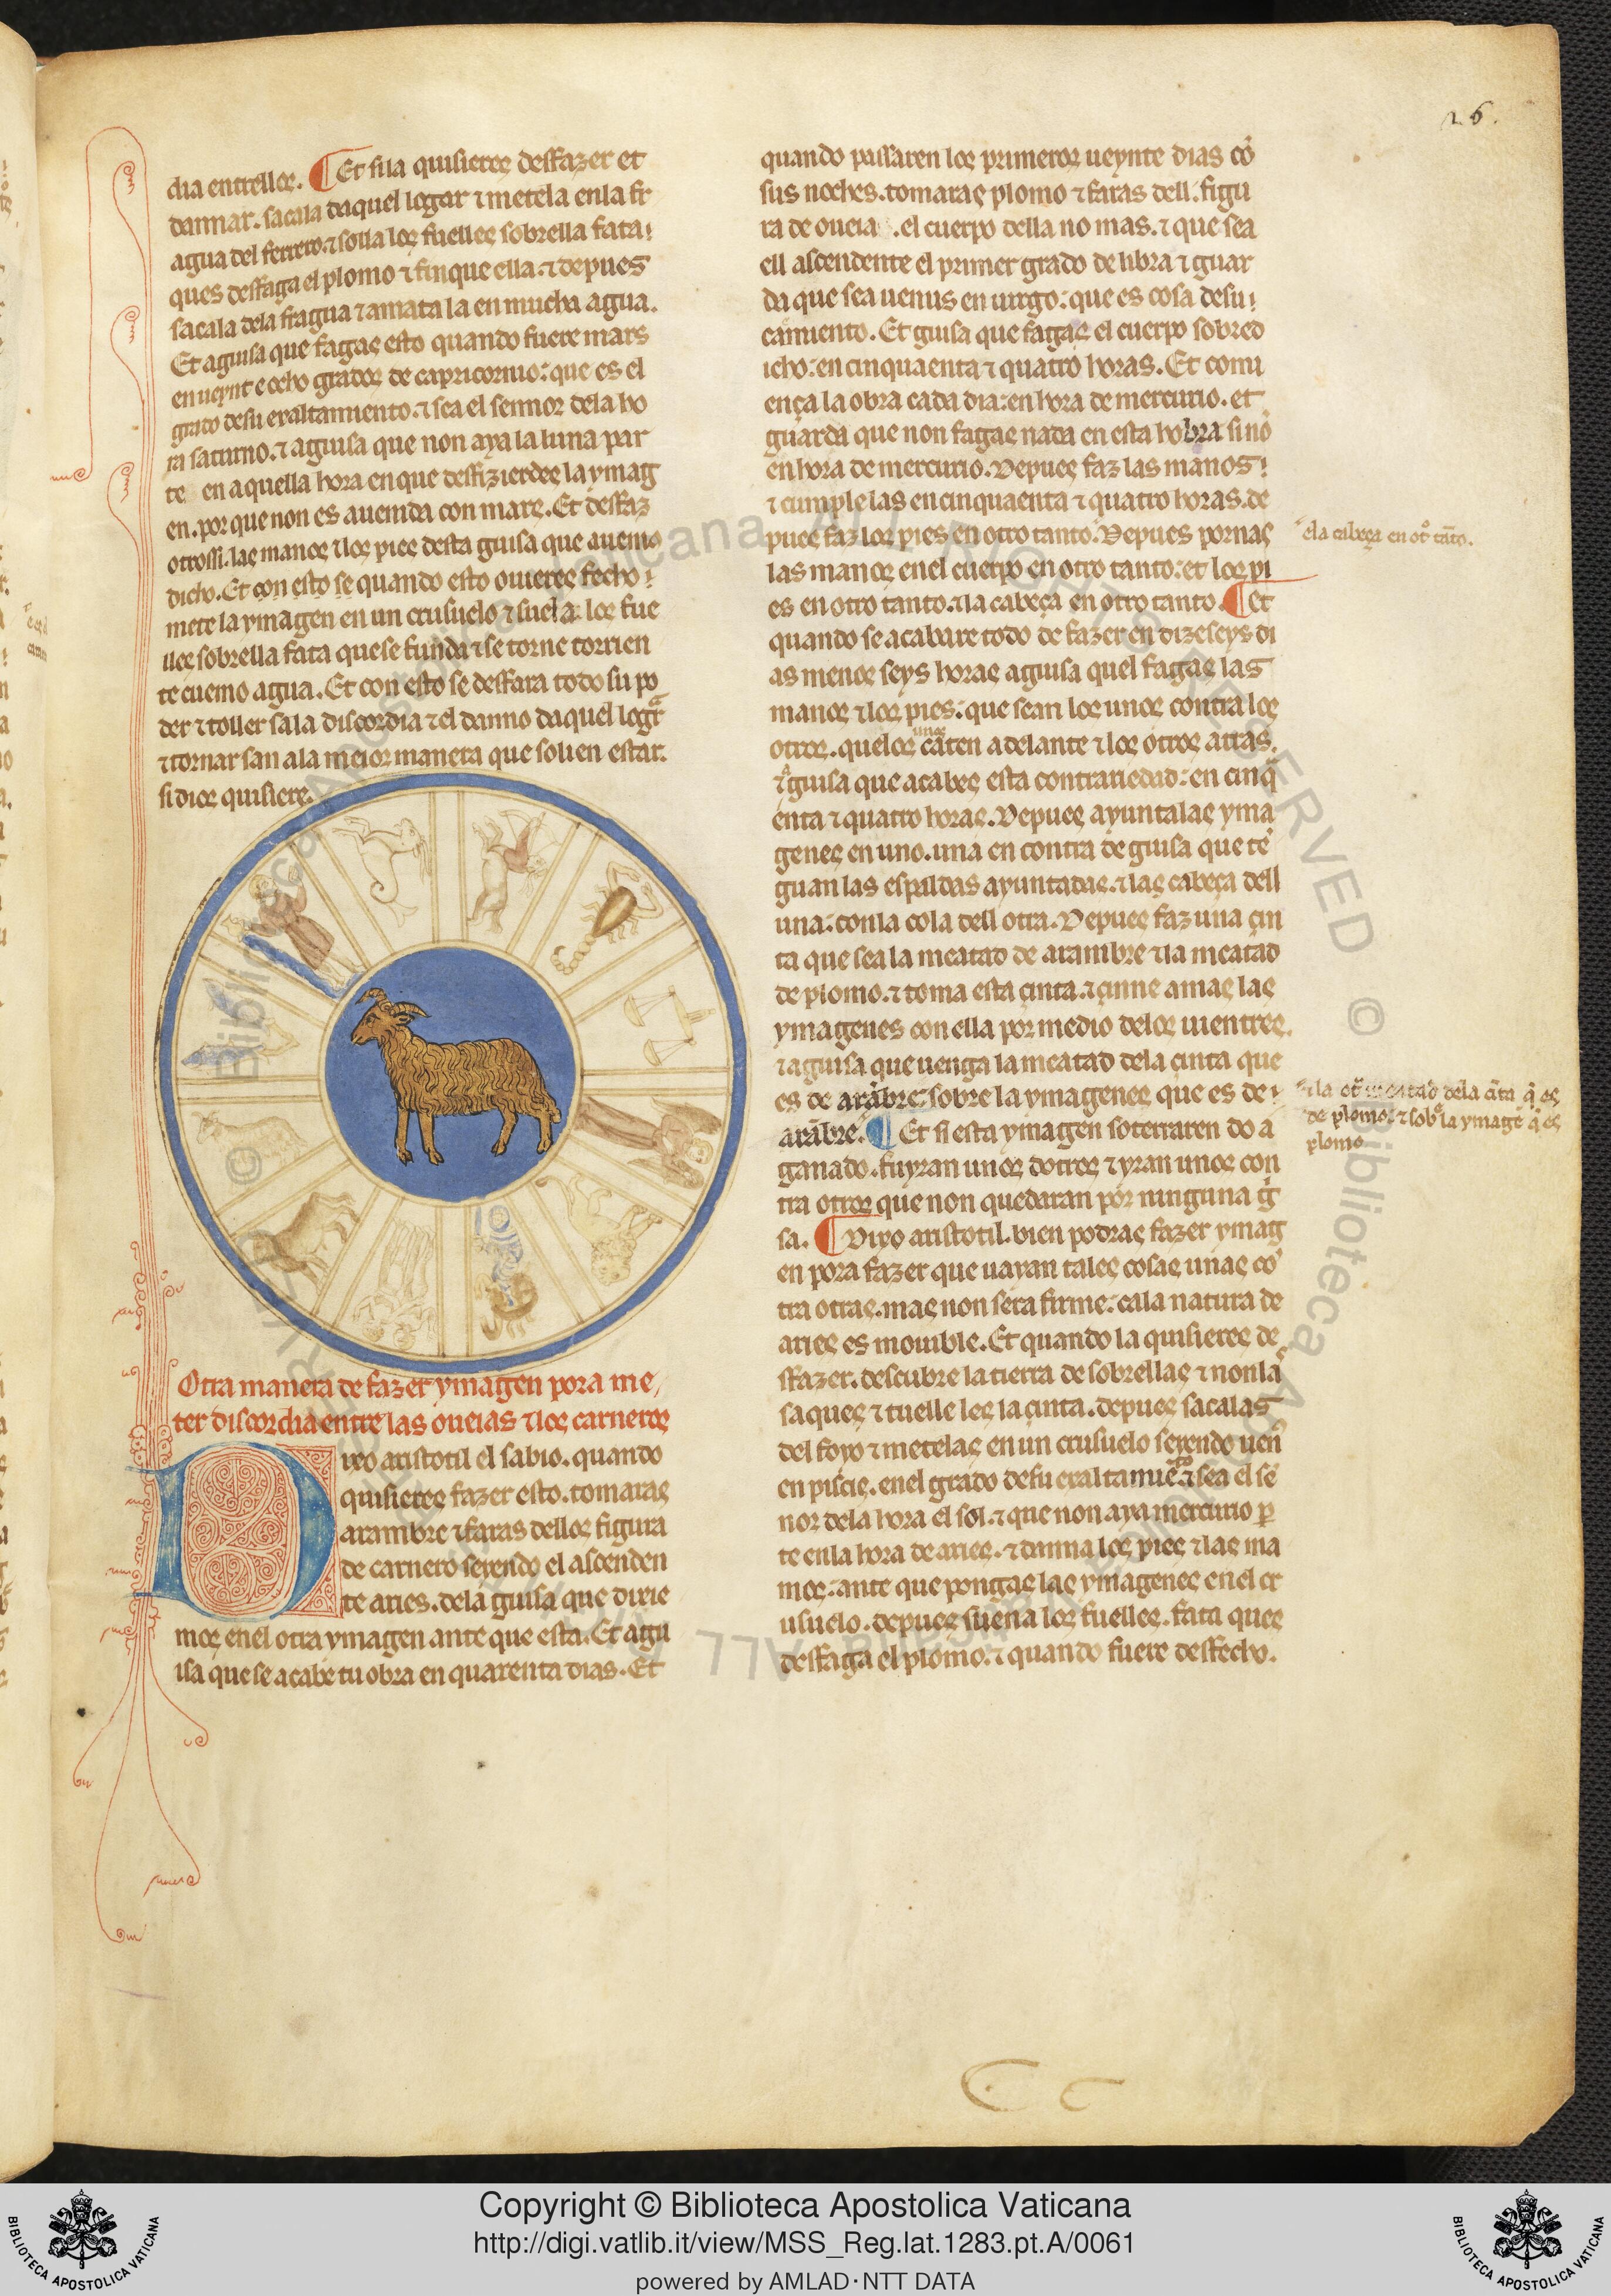 26.
dia entrellos. ¶ Et sila quisieres desfazer et
dannar. sacala daquel logar ⁊ metela enla fr
agua del ferrero. ⁊ solla los fuelles sobrella fata
ques desfaga el plomo ⁊ finque ella. ⁊ depues
sacala dela fragua ⁊ amata la en mucha agua.
Et aguisa que fagas esto quando fuere mars
en ueynt e ocho grados de capricornio: que es el
grado desu exaltamiento. ⁊ sea el sennor dela ho
ra saturno. ⁊ aguisa que non aya la luna par
te en aquella hora en que desfizierdes la ymag
en. por que non es auenida con mars. Et desfaz
otrossi. las manos ⁊ los pies desta guisa que auemos
dicho. Et con esto se quando esto ouieres fecho
mete la ymagen en un crusuelo ⁊ suela los fue
lles sobrella fata que se funda ⁊ se torne corrien
te cuemo agua. Et con esto se desfara todo su po
der ⁊ toller sa la discordia ⁊ el danno daquel logar
⁊ tornar san ala meior manera que solien estar.
si dios quisiere.
Otra manera de fazer ymagen pora me
ter discordia entre las oueias ⁊ los carneros
Dixo aristotil el sabio. quando
quisieres fazer esto. tomaras
arambre ⁊ faras dellos figura
de carnero seyendo el ascenden
te aries. dela guisa que dixie
mos enel otra ymagen ante que esta. Et agu
isa que se acabe tu obra en quarenta dias. Et
quando passaren los primeros ueynte dias cõ
sus noches. tomaras plomo ⁊ faras dell. figu
ra de oueia .el cuerpo della no mas. ⁊ que sea
ell ascendente el primer grado de libra ⁊ guar
da que sea uenus en uirgo: que es cosa desu
caimiento. Et guisa que fagas el cuerpo sobred
icho: en cinquaenta ⁊ quatro horas. Et comi
ença la obra cada dia: en hora de mercurio. et
guarda que non fagas nada en esta hobra sinõ
en hora de mercurio. Depues faz las manos
⁊ cumple las en cinquaenta ⁊ quatro horas. de
pues faz los pies en otro tanto. Depues pornas
las manos enel cuerpo en otro tanto: et los pi
es en otro tanto. ⁊ la cabeça en otro tanto. ¶ et
quando se acabare todo de fazer en dizeseys di
as menos seys horas aguisa quel fagas las
manos ⁊ los pies: que sean los unos contra los
otros. quelos unos caten adelante ⁊ los otros atras.
⁊ guisa que acabes esta contrariedad: en cinq̃
enta ⁊ quatro horas. Depues ayuntalas yma
genes en uno. una en contra de guisa que tẽ
guan las espaldas ayuntadas. ⁊ las cabeça dell
una: con la cola dell otra. Depues faz una çin
ta que sea la meatad de arambre ⁊ la meatad
de plomo. ⁊ toma esta çinta. ⁊ çinne amas las
ymagenes con ella por medio delos uientres.
⁊ aguisa que uenga la meatad dela çinta que
es de arãbre: sobre la ymagenes que es de
arãbre. ¶ Et si esta ymagen soterraren do a
ganado. fuyran unos dotros ⁊ yran unos con
tra otros que non quedaran por ninguna g̃
sa. ¶ Dixo aristotil. bien podras fazer ymag
en pora fazer que uayan tales cosas unas cõ
tra otras. mas non sera firme: ca la natura de
aries es mouible. Et quando la quisieres de
sfazer. descubre la tierra de sobrellas ⁊ non las
saques ⁊ tuelle les la çinta. depues sacalas
del foyo ⁊ metelas en un crusuelo seyendo uen
en piscis. enel grado desu exaltamiẽto ⁊ sea el sẽ
nor dela hora el sol. ⁊ que non aya mercurio ꝑ
te enla hora de aries. ⁊ danna los pies ⁊ las ma
nos: ante que pongas las ymagenes enel cr
usuelo. depues suena los fuelles. fata ques
desfaga el plomo. ⁊ quando fuere desfecho.
ela cabeça en otº tãto.
⁊ la otª meatad dela çĩta q̃ es
de plomo: ⁊ sobre la ymagẽ q̃ es
plomo
Copyright © Biblioteca Apostolica Vaticana
http://digi.vatlib.it/view/MSS_Reg.lat.1283.pt.A/0061
powered by AMLAD·NTT DATA
BIBLIOTECA APOSTOLICA VATICANA
BIBLIOTECA APOSTOLICA VATICANA